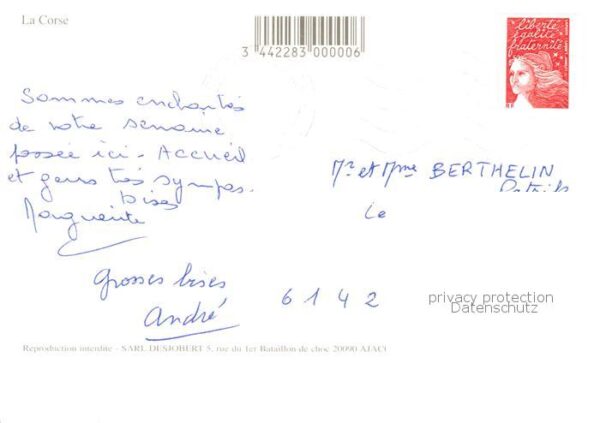 La Corse
3 442283 000006
liberté
égalité
fraternité
Sommes enchantés
de notre semaine
passée ici. Accueil
et gens très sympas.
Bises
Marguerite
Mr et Mme BERTHELIN
Le
Grosses bises
André
6 1 4 2
privacy protection
Datenschutz
Reproduction interdite - SARL DESJOBERT 5, rue du 1er Bataillon de choc 20090 AJAC